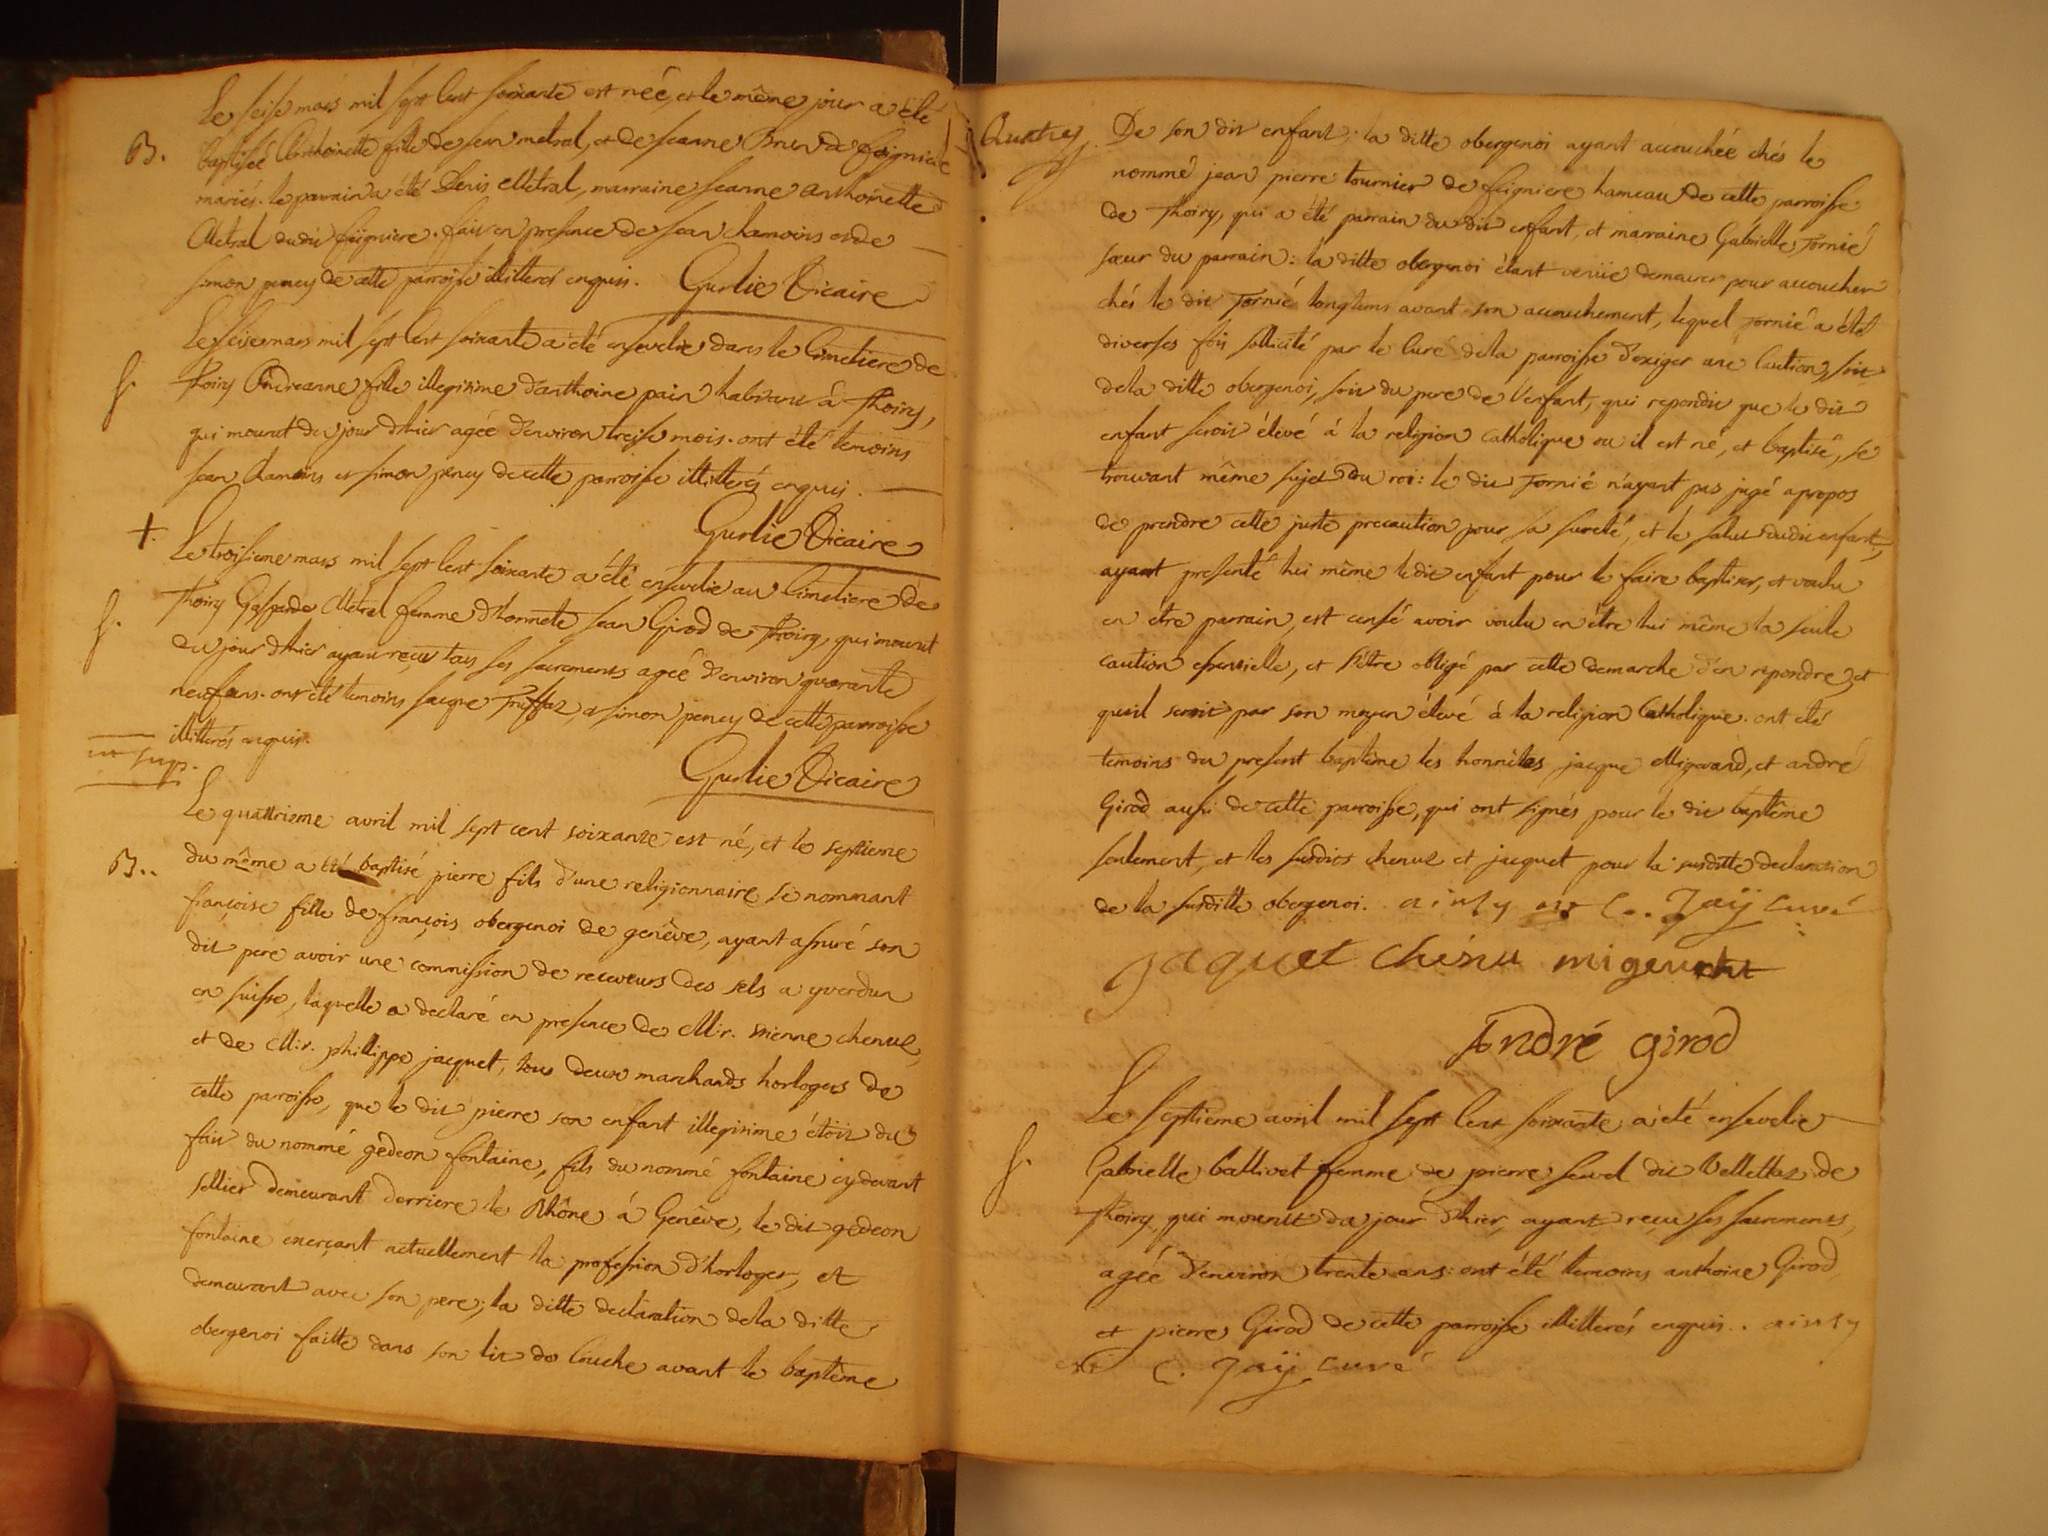 Le seise mars mil sept cent soixante est neé, et le même jour a été
B. baptiseé Anthoinette fille de Jean metral, et de Jeanne Brun de feigniere
mariés. le parrain a été Denis Metral, marraine Jeanne anthoinette
Metral dudit feigniere. fait en presence de Jean Chamoins et de
simon pency de cette parroisse illitterés enquis. Gurlie Vicaire
Le seise mars mil sept cent soixante a été ensevelie dans le Cimetiere de
S. Thoiry Andreanne fille illegitime d'anthoine pain habitant à Thoiry,
qui mourut du jour d'hier ageé d'environ treise mois. ont été temoins
Jean Chamoins et simon pency de cette parroisse illitterés enquis.
Gurlie Vicaire
+. Le troisieme mars mil sept cent soixante a été ensevelie au Cimetiere de
S. Thoiry Gasparde Metral femme d'honnete Jean Girod de Thoiry, qui mourut
du jour d'hier ayant reçu tous ses sacrements ageé d'environ quarante
neuf ans. ont été temoins Jacque Truffaz, et simon pency de cette parroisse
illitterés enquis.
ut sup. Gurlie Vicaire
Le quattrieme avril mil sept cent soixante est né, et le septieme
B.. du même a été baptisé pierre fils d'une religionnaire se nommant
françoise fille de françois obergenoi de genêve, ayant assuré son
dit pere avoir une commission de receveurs des sels a yverdun
en suisse, laquelle a declaré en presence de Mr. etienne chenue,
et de Mr. phillippe jacquet, tous deux marchands horlogers de
cette parroisse, que le dit pierre son enfant illegitime étoit du
fait du nommé gedeon fontaine, fils du nommé fontaine cydevant
sellier demeurant derriere le Rhône á Genêve, le dit gedeon
fontaine exerçant actuellement la profession d'horloger, et
demeurant avec son pere; la ditte declaration dela ditte
obergenoi faitte dans son lit de couche avant le baptême
De son dit enfant: la ditte obergenoi ayant accouchée chés le
nommé jean pierre tournier de feigniere hameau de cette parroisse
de Thoiry, qui a été parrain du dit enfant, et marraine Gabrielle Tornié
sœur du parrain: la ditte obergenoi êtant venüe demeurer pour accoucher
chés le dit Tornié longtems avant son accouchement, lequel Tornié a été
diverses fois sollicité par le Curé dela parroisse d'exiger une Caution, soit
dela ditte obergenoi, soit du pere de l'enfant, qui repondit que le dit
enfant seroit élevé á la religion catholique ou il est né, et baptisé, se
trouvant même sujet du roi: le dit Tornié n'ayant pas jugé apropos
de prendre cette juste precaution pour sa sureté, et le salut dudit enfant,
ayant presenté lui même ledit enfant pour le faire baptiser, et voulu
en être parrain, est censé avoir voulu en être lui même la seule
caution essentielle, et s'être obligé par cette demarche d'en repondre, et
quil seroit par son moyen élevé à la religion Catholique. ont été
temoins du present baptême les honnêtes jacque Migevand, et andré
Girod aussi de cette parroisse, qui ont signés pour le dit baptême
seulement, et les susdits chenue et jacquet pour la susditte declaration
de la susditte obergenoi. ainsy est C. Jaÿ curé
Jaquet Chénu migevant
André girod
Le septieme avril mil sept cent soixante a été ensevelie
S. Gabrielle ballivet femme de pierre sevel dit Vellettaz de
Thoiry, qui mourut du jour d'hier, ayant reçu ses sacrements,
ageé d'environ trente ans: ont été temoins anthoine Girod,
et pierre Girod de cette parroisse illitterés enquis.. ainsy
est C. Jaÿ curé